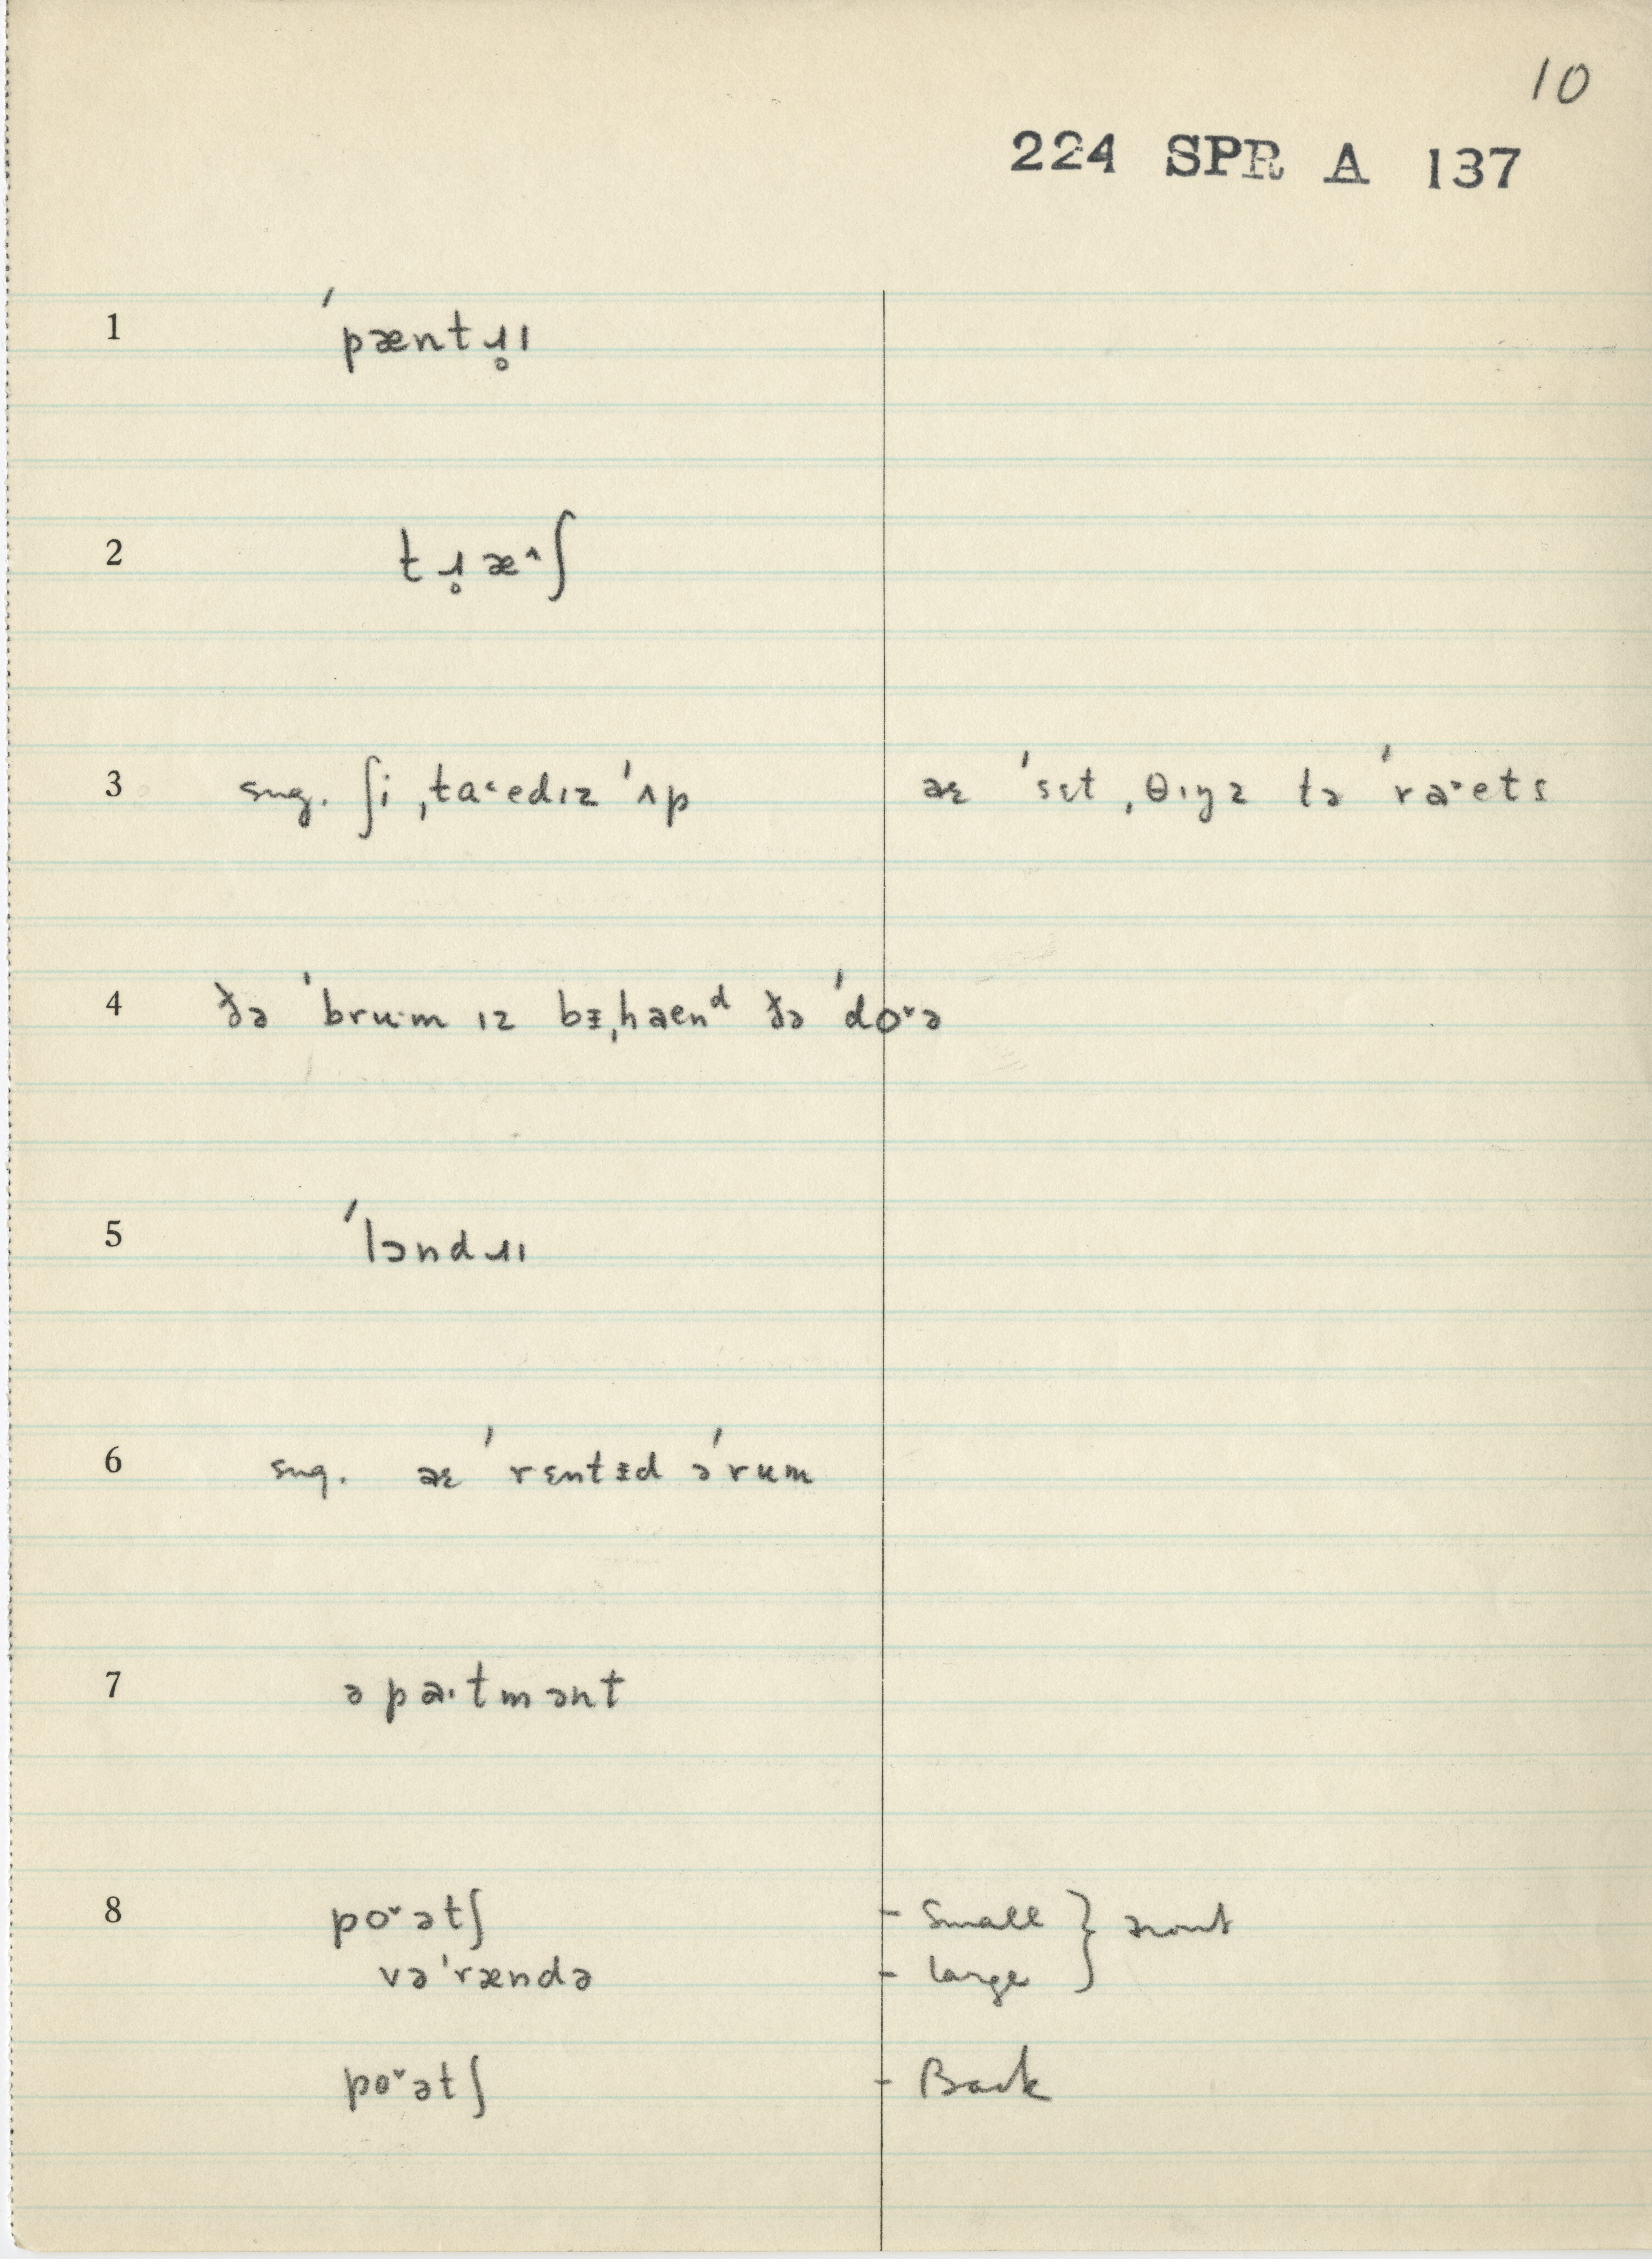 10
224 SPR A 137
1 ˈpæntɹ̥ɪ
2 tɹ̥æ˄ʃ
3 sug. ʃi ˌta˂ediz ˈʌp aɛ ˈsɛt ˌθɪŋz tə ˈra˃ets
4 ðə ˈbru·m ɪz bɪ̵ˌhaenᵈ ðə ˈdo˅ə
5 ˈlɔndɹɪ
6 sug. aɛ ˈrɛntɪ̵d əˈrum
7 əpa·tmənt
8 po˅ətʃ - Small }
vəˈrændə - large
po˅ətʃ - Back